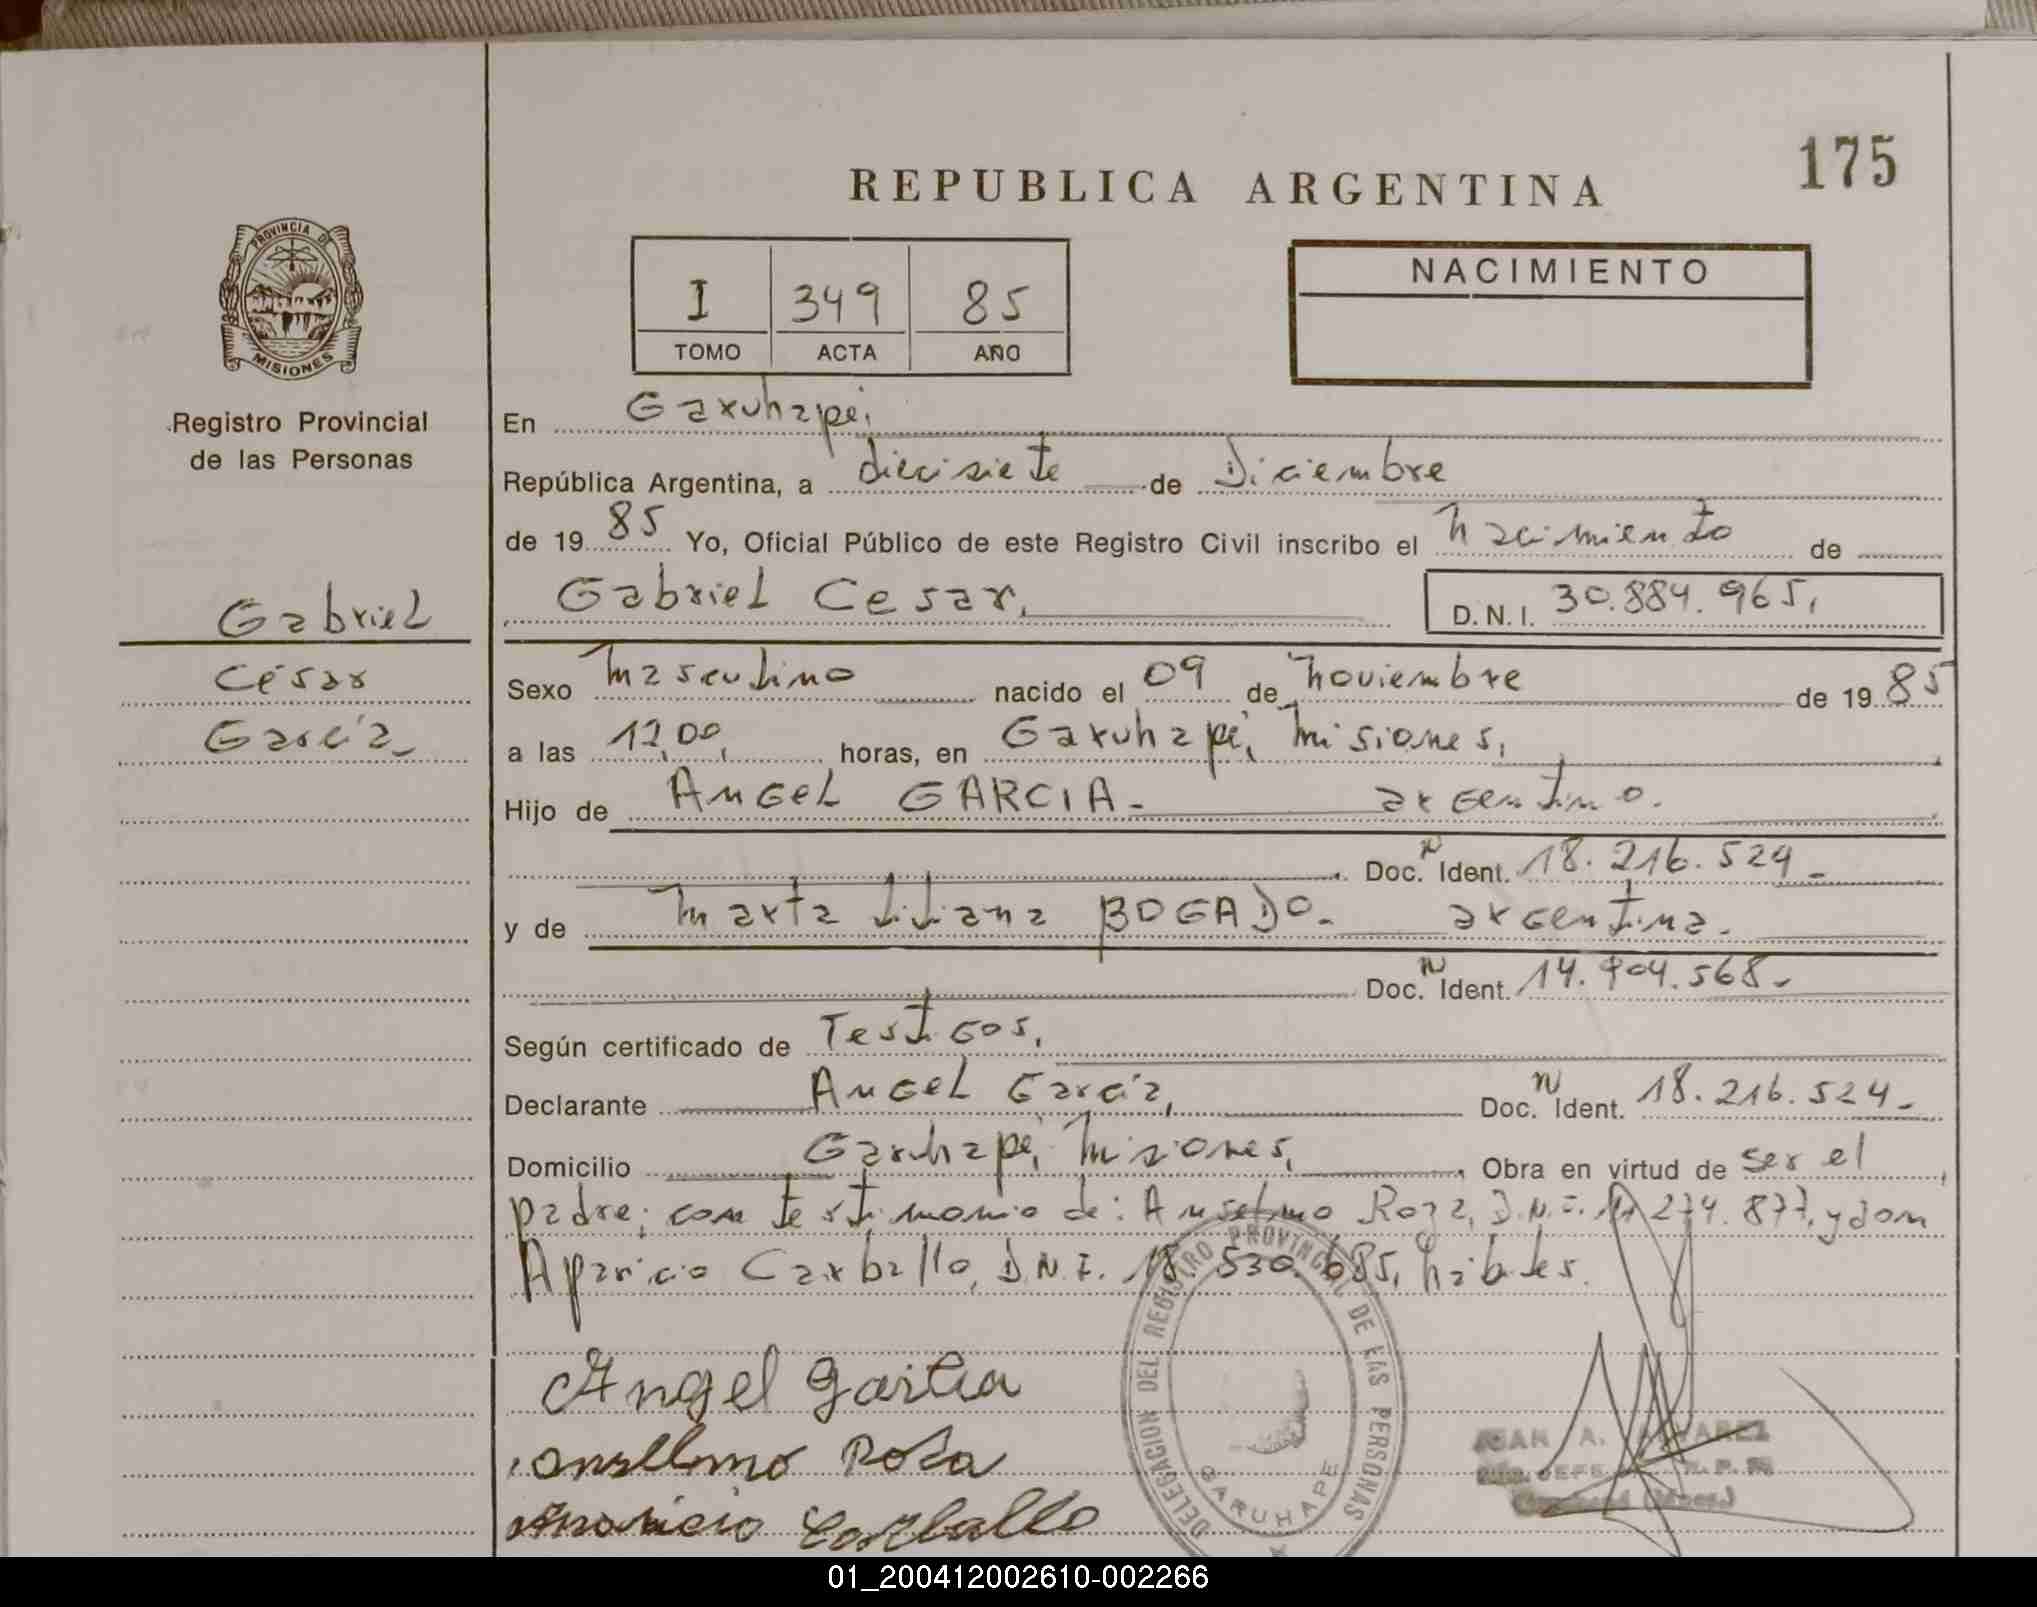 175
REPUBLICA ARGENTINA
PROVINCIA DE
MISIONES
Registro Provincial
de las Personas
I 349 85
TOMO ACTA AÑO
NACIMIENTO
En Garuhapé,
República Argentina, a diecisiete de Diciembre
de 19 85 Yo, Oficial Público de este Registro Civil inscribo el nacimiento de
Gabriel Cesar,
D.N.I. 30.884.965,
Gabriel
César
García
Sexo masculino nacido el 09 de noviembre de 19 85
a las 12,00, horas, en Garuhapé, Misiones,
Hijo de Angel GARCIA.- argentino.
Doc. N Ident. 18.216.524-
y de Marta Liliana BOGADO.- argentina.
Doc. N Ident. 14.904.568-
Según certificado de Testigos,
Declarante Angel García, Doc. N Ident. 18.216.524-
Domicilio Garuhapé, Misiones, Obra en virtud de ser el
padre; con testimonio de: Anselmo Roza, D.N.I. 274.877, y don
Aparicio Carballo, D.N.I. 18.530.685, hábiles.
Angel Garcia
Ansellmo Rosa
Aparicio Carballo
DELEGACION DEL REGISTRO PROVINCIAL DE LAS PERSONAS
GARUHAPE
JUAN A. ALVAREZ
01_200412002610-002266